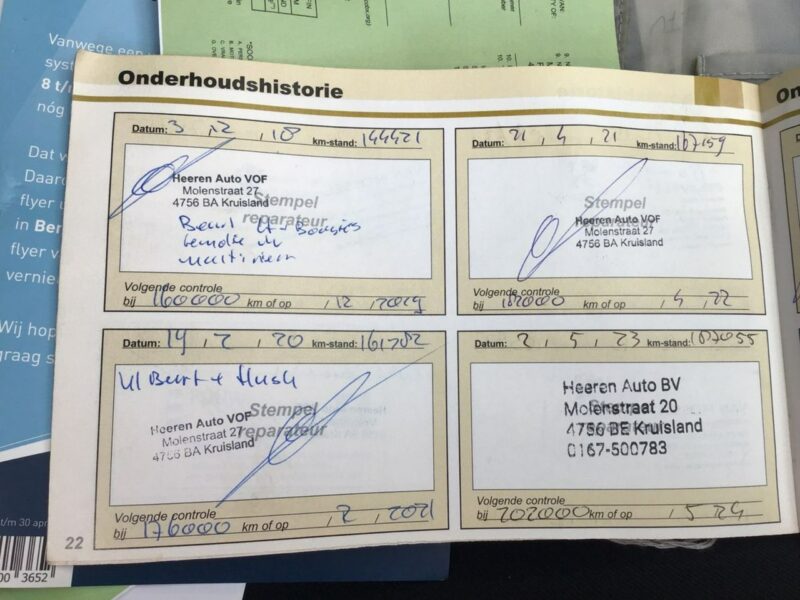 Vanwege een
syst
8 t/m
nóg
Dat w
Daaro
flyer u
in Ber
flyer v
vernie
Wij hop
graag s
t/m 30 apr
00 3652
Onderhoudshistorie
Datum: 3, 12, 18 km-stand: 144421
Heeren Auto VOF
Molenstraat 27
4756 BA Kruisland
Stempel
reparateur
Volgende controle
bij 160000 km of op , 12 , 2019
Datum: 21, 4, 21 km-stand: 167159
Stempel
reparateur
Heeren Auto VOF
Molenstraat 27
4756 BA Kruisland
Volgende controle
bij 182000 km of op , 4 , 22
Datum: 14, 2, 20 km-stand: 161702
Beurt + flush
Heeren Auto VOF
Molenstraat 27
4756 BA Kruisland
Stempel
reparateur
Volgende controle
bij 176000 km of op , 2 , 2021
Datum: 2, 5, 23 km-stand: 187055
Heeren Auto BV
Molenstraat 20
4756 BE Kruisland
0167-500783
Volgende controle
bij 202000 km of op , 5 24
22
On